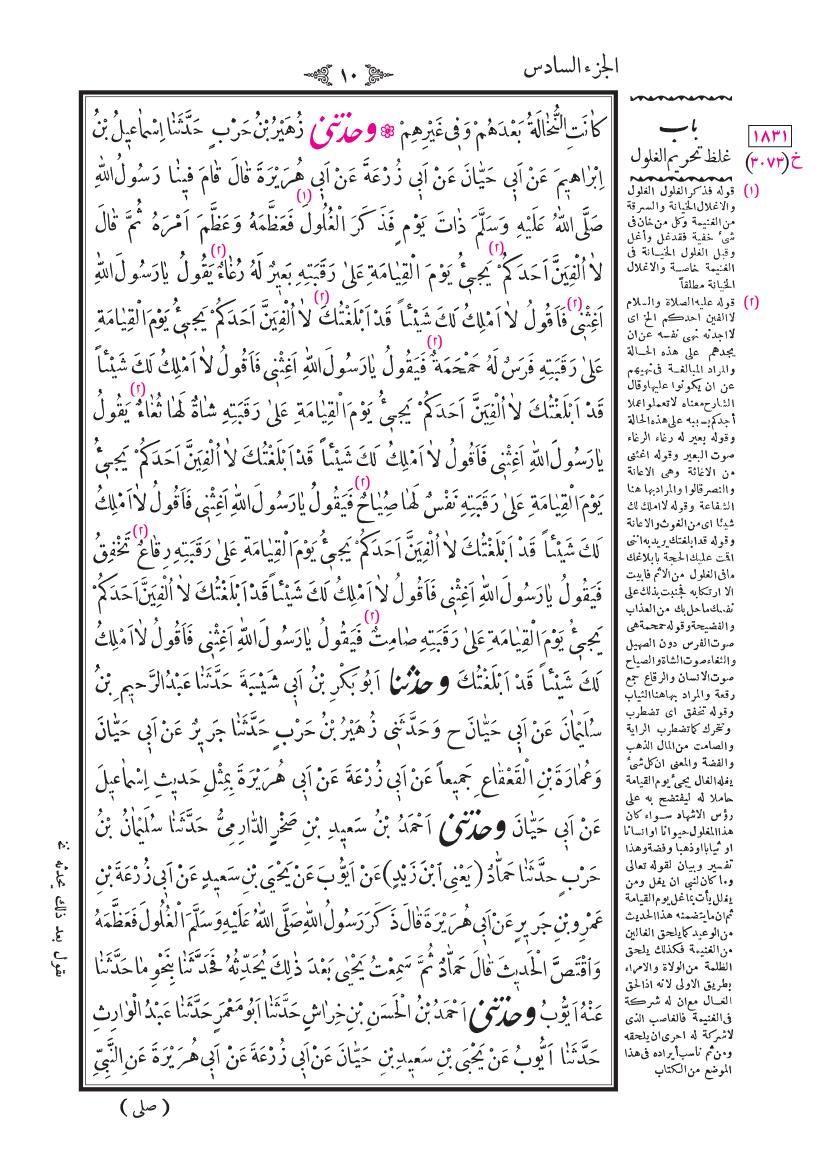 الجزء السادس
١٠
كَانَتِ النُّخَالَةُ بَعْدَهُمْ وَفِي غَيْرِهِمْ ❁ وَحَدَّثَنِي زُهَيْرُ بْنُ حَرْبٍ حَدَّثَنَا اِسْمَاعِيلُ بْنُ
اِبْرَاهِيمَ عَنْ اَبِي حَيَّانَ عَنْ اَبِي زُرْعَةَ عَنْ اَبِي هُرَيْرَةَ قَالَ قَامَ فِينَا رَسُولُ اللهِ
صَلَّى اللهُ عَلَيْهِ وَسَلَّمَ ذَاتَ يَوْمٍ فَذَكَرَ الْغُلُولَ (١) فَعَظَّمَهُ وَعَظَّمَ اَمْرَهُ ثُمَّ قَالَ
لَا اُلْفِيَنَّ اَحَدَكُمْ (٢) يَجِيءُ يَوْمَ الْقِيَامَةِ عَلَى رَقَبَتِهِ بَعِيرٌ لَهُ رُغَاءٌ (٢) يَقُولُ يَا رَسُولَ اللهِ
اَغِثْنِي (٢) فَاَقُولُ لَا اَمْلِكُ لَكَ شَيْئًا قَدْ اَبْلَغْتُكَ (٢) لَا اُلْفِيَنَّ اَحَدَكُمْ يَجِيءُ يَوْمَ الْقِيَامَةِ
عَلَى رَقَبَتِهِ فَرَسٌ لَهُ حَمْحَمَةٌ (٢) فَيَقُولُ يَا رَسُولَ اللهِ اَغِثْنِي فَاَقُولُ لَا اَمْلِكُ لَكَ شَيْئًا
قَدْ اَبْلَغْتُكَ لَا اُلْفِيَنَّ اَحَدَكُمْ يَجِيءُ يَوْمَ الْقِيَامَةِ عَلَى رَقَبَتِهِ شَاةٌ لَهَا ثُغَاءٌ (٢) يَقُولُ
يَا رَسُولَ اللهِ اَغِثْنِي فَاَقُولُ لَا اَمْلِكُ لَكَ شَيْئًا قَدْ اَبْلَغْتُكَ لَا اُلْفِيَنَّ اَحَدَكُمْ يَجِيءُ
يَوْمَ الْقِيَامَةِ عَلَى رَقَبَتِهِ نَفْسٌ لَهَا صِيَاحٌ (٢) فَيَقُولُ يَا رَسُولَ اللهِ اَغِثْنِي فَاَقُولُ لَا اَمْلِكُ
لَكَ شَيْئًا قَدْ اَبْلَغْتُكَ لَا اُلْفِيَنَّ اَحَدَكُمْ يَجِيءُ يَوْمَ الْقِيَامَةِ عَلَى رَقَبَتِهِ رِقَاعٌ (٢) تَخْفِقُ
فَيَقُولُ يَا رَسُولَ اللهِ اَغِثْنِي فَاَقُولُ لَا اَمْلِكُ لَكَ شَيْئًا قَدْ اَبْلَغْتُكَ لَا اُلْفِيَنَّ اَحَدَكُمْ
يَجِيءُ يَوْمَ الْقِيَامَةِ عَلَى رَقَبَتِهِ صَامِتٌ (٢) فَيَقُولُ يَا رَسُولَ اللهِ اَغِثْنِي فَاَقُولُ لَا اَمْلِكُ
لَكَ شَيْئًا قَدْ اَبْلَغْتُكَ وَحَدَّثَنَا اَبُو بَكْرِ بْنُ اَبِي شَيْبَةَ حَدَّثَنَا عَبْدُ الرَّحِيمِ بْنُ
سُلَيْمَانَ عَنْ اَبِي حَيَّانَ ح وَحَدَّثَنِي زُهَيْرُ بْنُ حَرْبٍ حَدَّثَنَا جَرِيرٌ عَنْ اَبِي حَيَّانَ
وَعُمَارَةَ بْنِ الْقَعْقَاعِ جَمِيعًا عَنْ اَبِي زُرْعَةَ عَنْ اَبِي هُرَيْرَةَ بِمِثْلِ حَدِيثِ اِسْمَاعِيلَ
عَنْ اَبِي حَيَّانَ وَحَدَّثَنِي اَحْمَدُ بْنُ سَعِيدِ بْنِ صَخْرٍ الدَّارِمِيُّ حَدَّثَنَا سُلَيْمَانُ بْنُ
حَرْبٍ حَدَّثَنَا حَمَّادٌ (يَعْنِي ابْنَ زَيْدٍ) عَنْ اَيُّوبَ عَنْ يَحْيَى بْنِ سَعِيدٍ عَنْ اَبِي زُرْعَةَ بْنِ
عَمْرِو بْنِ جَرِيرٍ عَنْ اَبِي هُرَيْرَةَ قَالَ ذَكَرَ رَسُولُ اللهِ صَلَّى اللهُ عَلَيْهِ وَسَلَّمَ الْغُلُولَ فَعَظَّمَهُ
وَاقْتَصَّ الْحَدِيثَ قَالَ حَمَّادٌ ثُمَّ سَمِعْتُ يَحْيَى بَعْدَ ذَلِكَ يُحَدِّثُهُ فَحَدَّثَنَا بِنَحْوِ مَا حَدَّثَنَا
عَنْهُ اَيُّوبُ وَحَدَّثَنِي اَحْمَدُ بْنُ الْحَسَنِ بْنِ خِرَاشٍ حَدَّثَنَا اَبُو مَعْمَرٍ حَدَّثَنَا عَبْدُ الْوَارِثِ
حَدَّثَنَا اَيُّوبُ عَنْ يَحْيَى بْنِ سَعِيدِ بْنِ حَيَّانَ عَنْ اَبِي زُرْعَةَ عَنْ اَبِي هُرَيْرَةَ عَنِ النَّبِيِّ
( صلى )
١٨٣١
خ (٣٠٧٣)
باب
غلظ تحريم الغلول
(١) قوله فذكر الغلول الغلول
والاغلال الخيانة والسرقة
من الغنيمة وكل من خان في
شئ خفية فقد غل وأغل
وقيل الغلول الخيانة فى
الغنيمة خاصة والاغلال
الخيانة مطلقاً
(٢) قوله عليه الصلاة والسلام
لا الفين احدكم الخ اى
لا اجدنه نهى نفسه عن ان
يجدهم على هذه الحالة
والمراد المبالغة فى نهيهم
عن ان يكونوا عليها وقال
الشارح معناه لا تعملوا عملا
أجدكم بسببه على هذه الحالة
وقوله بعير له رغاء الرغاء
صوت البعير وقوله اغثنى
من الاغاثة وهى الاعانة
والنصر قالوا والمراد بها هنا
الشفاعة وقوله لا املك لك
شيئا اى من الغوث والاعانة
وقوله قد ابلغتك يريد به انى
اقت عليك الحجة بابلاغك
ما فى الغلول من الاثم فابيت
الا ارتكابه فجنيت بذلك على
نفسك ما حل بك من العذاب
والفضيحة وقوله حمحمة هى
صوت الفرس دون الصهيل
والثغاء صوت الشاة والصياح
صوت الانسان والرقاع جمع
رقعة والمراد بها هنا الثياب
وقوله تخفق اى تضطرب
وتتحرك كما تضطرب الراية
والصامت من المال الذهب
والفضة والمعنى ان كل شئ
يغله الغال يجئ يوم القيامة
حاملا له ليفتضح به على
رؤس الاشهاد سواء كان
هذا المغلول حيوانا او انسانا
او ثيابا او ذهبا وفضة وهذا
تفسير وبيان لقوله تعالى
وما كان لنبى ان يغل ومن
يغلل يأت بما غل يوم القيامة
ثم ان ما يتضمنه هذا الحديث
من الوعيد كما يلحق الغالين
من الغنيمة فكذلك يلحق
الظلمة من الولاة والامراء
بطريق الاولى لانه اذا لحق
الغال مع ان له شركة
فى الغنيمة فالغاصب الذى
لا شركة له احرى ان يلحقه
ومن ثم ناسب أيراده فى هذا
الموضع من الكتاب
يقول بعد ذلك يحدثه نخ